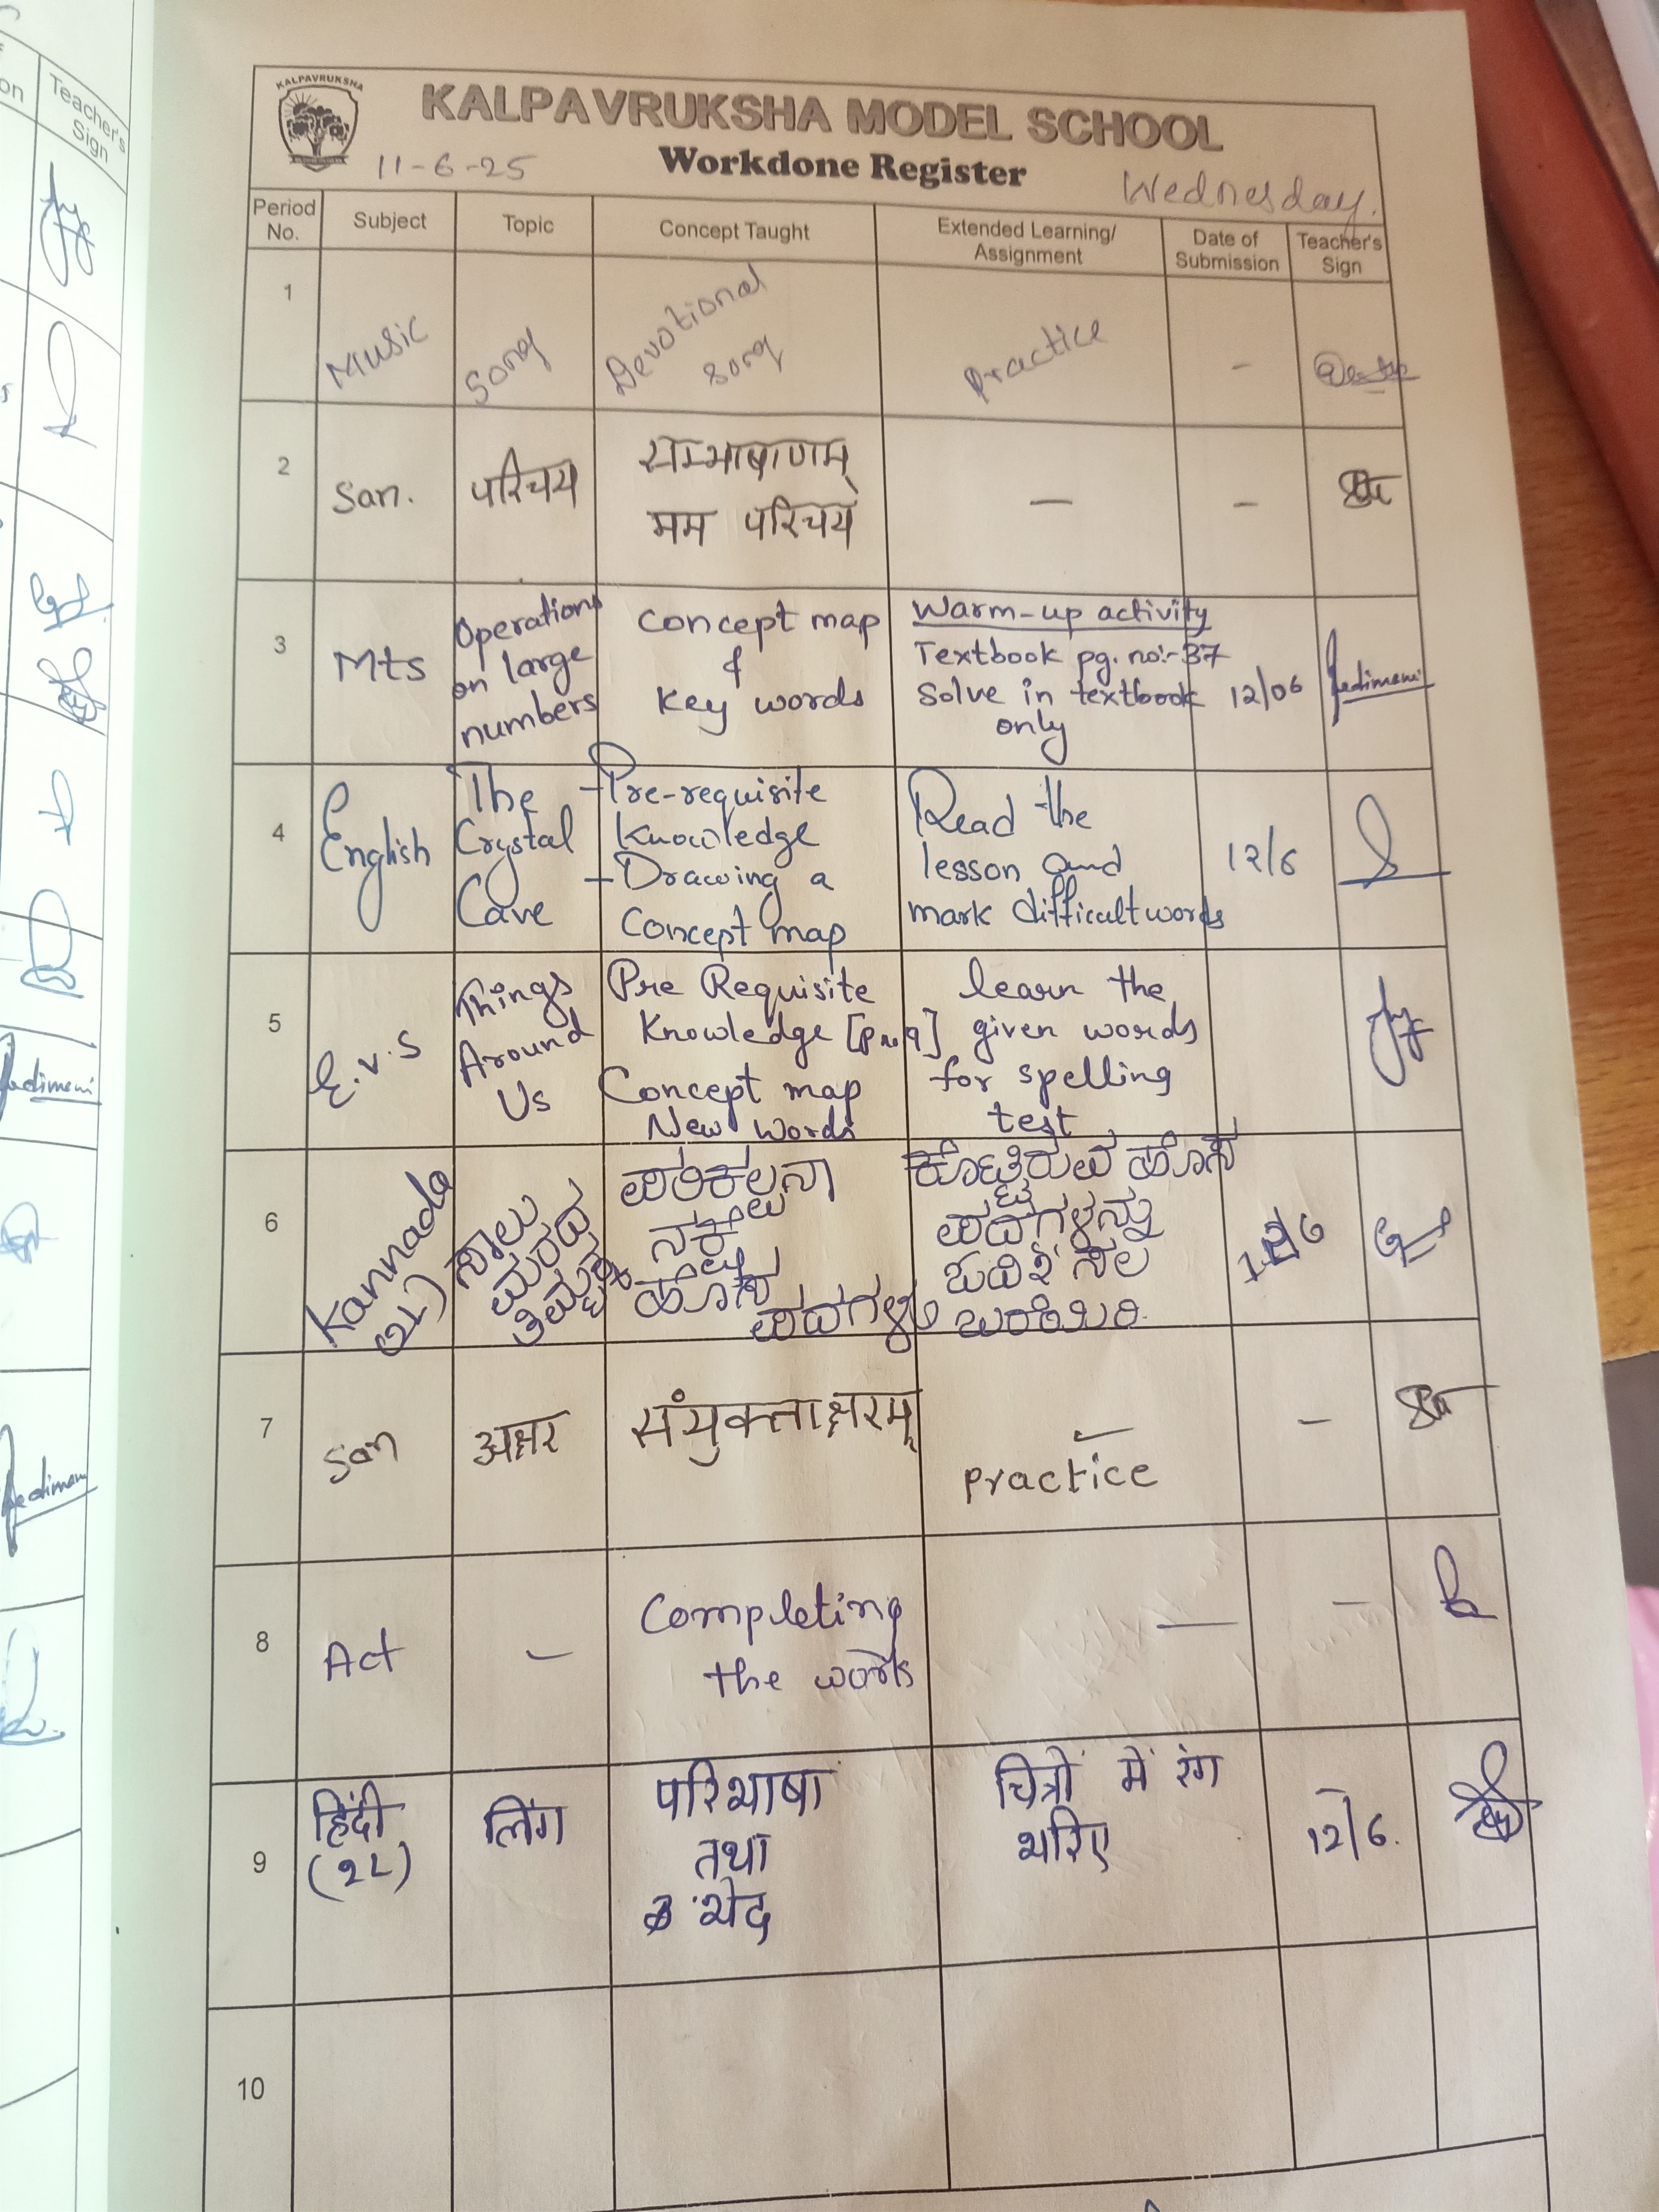 KALPAVRUKSHA
KALPAVRUKSHA MODEL SCHOOL
Workdone Register
11-6-25
Wednesday.
Period No.
Subject
Topic
Concept Taught
Extended Learning/
Assignment
Date of
Submission
Teacher's
Sign
1
Music
Song
Devotional
song
Practice
-
2
San.
परिचय
सम्भाषाणम्
मम परिचय
-
-
3
Mts
Operations
on large
numbers
Concept map
&
Key words
Warm-up activity
Textbook pg. no:-37
Solve in textbook
only
12/06
Jedimani
4
English
The
Crystal
Cave
-Pre-requisite
Knowledge
-Drawing a
Concept map
Read the
lesson and
mark difficult words
12/6
5
E.v.s
Things
Around
Us
Pre Requisite
Knowledge [p no 9]
Concept map
New words
learn the
given words
for spelling
test
6
Kannada
(2L)
ಸಾಲು
ಮರದ
ತಿಮ್ಮಕ್ಕ
ಪರಿಕಲ್ಪನಾ
ನಕ್ಷೆ
ಹೊಸ
ಪದಗಳು
ಕೊಟ್ಟಿರುವ ಹೊಸ
ಪದಗಳನ್ನು
ಬರೆಯಿರಿ.
7
San
अक्षर
संयुक्ताक्षरम्
practice
-
8
Act
-
Completing
the work
-
-
9
हिंदी
(2L)
लिंग
परिभाषा
तथा
भेद
चित्रों में रंग
भरिए
12/6.
10
Teacher's
Sign